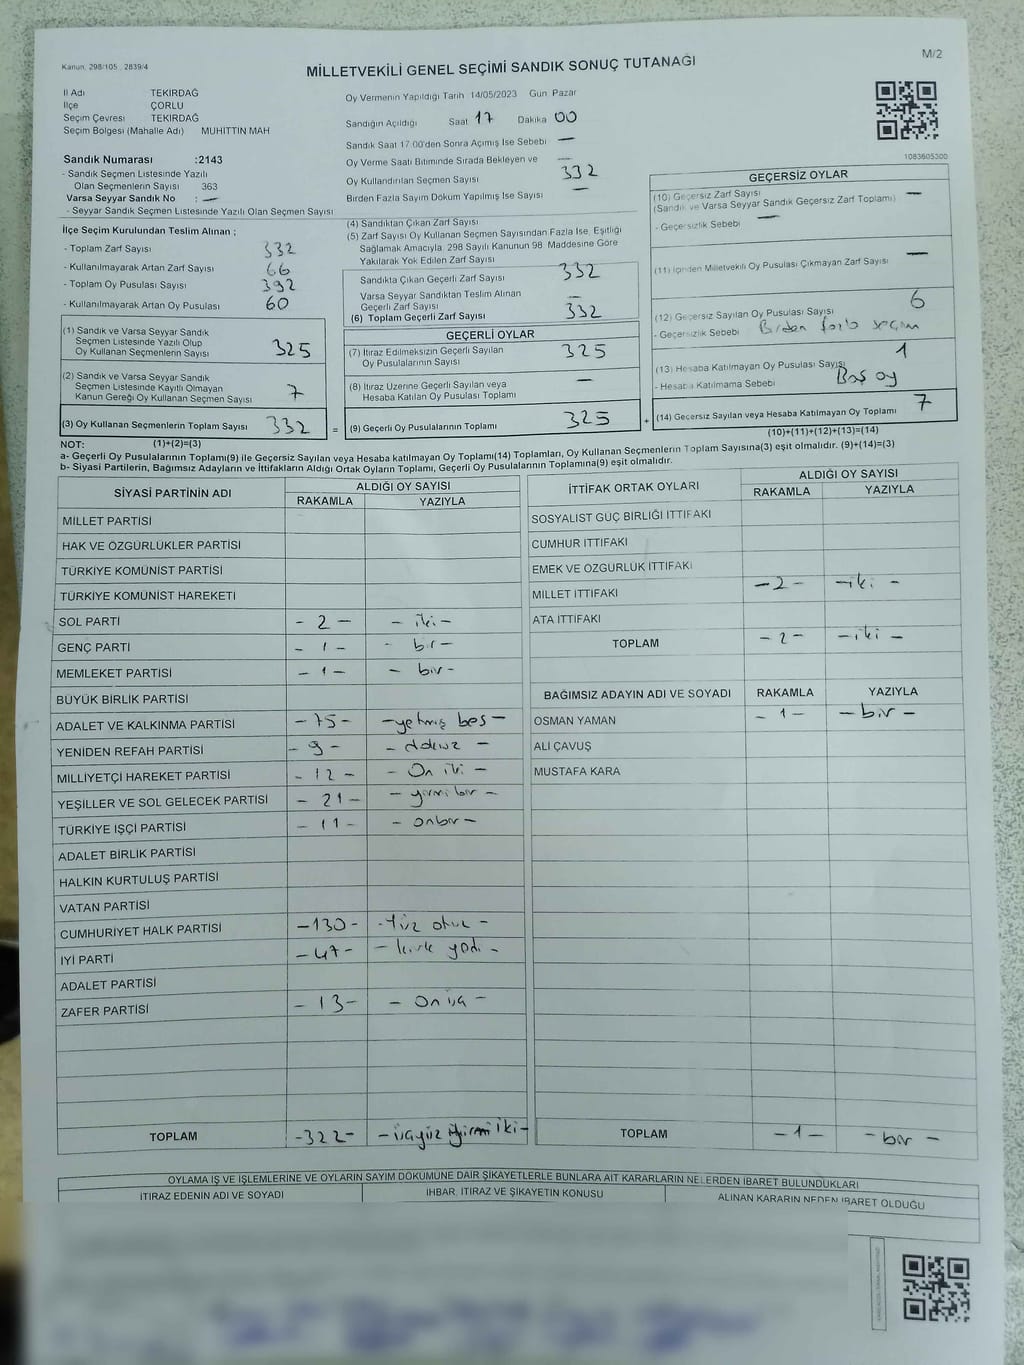 Kanun, 298/105 , 2839/4
M/2
MİLLETVEKİLİ GENEL SEÇİMİ SANDIK SONUÇ TUTANAĞI
İl Adı TEKİRDAĞ
İlçe ÇORLU
Seçim Çevresi TEKİRDAĞ
Seçim Bölgesi (Mahalle Adı) MUHİTTİN MAH
Sandık Numarası :2143
- Sandık Seçmen Listesinde Yazılı
Olan Seçmenlerin Sayısı 363
Varsa Seyyar Sandık No : —
- Seyyar Sandık Seçmen Listesinde Yazılı Olan Seçmen Sayısı
Oy Vermenin Yapıldığı Tarih 14/05/2023 Gün Pazar
Sandığın Açıldığı Saat 17 Dakika 00
Sandık Saat 17 00'den Sonra Açımış İse Sebebi —
Oy Verme Saati Bitiminde Sırada Bekleyen ve —
Oy Kullandırılan Seçmen Sayısı 332
Birden Fazla Sayım Döküm Yapılmış İse Sayısı —
1083605300
İlçe Seçim Kurulundan Teslim Alınan ;
- Toplam Zarf Sayısı 332
- Kullanılmayarak Artan Zarf Sayısı 66
- Toplam Oy Pusulası Sayısı 392
- Kullanılmayarak Artan Oy Pusulası 60
(1) Sandık ve Varsa Seyyar Sandık
Seçmen Listesinde Yazılı Olup
Oy Kullanan Seçmenlerin Sayısı 325
(2) Sandık ve Varsa Seyyar Sandık
Seçmen Listesinde Kayıtlı Olmayan
Kanun Gereği Oy Kullanan Seçmen Sayısı 7
(3) Oy Kullanan Seçmenlerin Toplam Sayısı 332 =
(4) Sandıktan Çıkan Zarf Sayısı
(5) Zarf Sayısı Oy Kullanan Seçmen Sayısından Fazla İse, Eşitliği
Sağlamak Amacıyla, 298 Sayılı Kanunun 98 Maddesine Göre
Yakılarak Yok Edilen Zarf Sayısı
Sandıkta Çıkan Geçerli Zarf Sayısı 332
Varsa Seyyar Sandıktan Teslim Alınan
Geçerli Zarf Sayısı —
(6) Toplam Geçerli Zarf Sayısı 332
GEÇERLİ OYLAR
(7) İtiraz Edilmeksizin Geçerli Sayılan
Oy Pusulalarının Sayısı 325
(8) İtiraz Üzerine Geçerli Sayılan veya
Hesaba Katılan Oy Pusulası Toplamı —
(9) Geçerli Oy Pusulalarının Toplamı 325 +
GEÇERSİZ OYLAR
(10) Geçersiz Zarf Sayısı
(Sandık ve Varsa Seyyar Sandık Geçersiz Zarf Toplamı) —
- Geçersizlik Sebebi —
(11) İçinden Milletvekili Oy Pusulası Çıkmayan Zarf Sayısı —
(12) Geçersiz Sayılan Oy Pusulası Sayısı 6
- Geçersizlik Sebebi Birden fazla seçim
(13) Hesaba Katılmayan Oy Pusulası Sayısı 1
- Hesaba Katılmama Sebebi Boş oy
(14) Geçersiz Sayılan veya Hesaba Katılmayan Oy Toplamı 7
(10)+(11)+(12)+(13)=(14)
NOT: (1)+(2)=(3)
a- Geçerli Oy Pusulalarının Toplamı(9) ile Geçersiz Sayılan veya Hesaba katılmayan Oy Toplamı(14) Toplamları, Oy Kullanan Seçmenlerin Toplam Sayısına(3) eşit olmalıdır. (9)+(14)=(3)
b- Siyasi Partilerin, Bağımsız Adayların ve İttifakların Aldığı Ortak Oyların Toplamı, Geçerli Oy Pusulalarının Toplamına(9) eşit olmalıdır.
SİYASİ PARTİNİN ADI ALDIĞI OY SAYISI
RAKAMLA YAZIYLA
MİLLET PARTİSİ
HAK VE ÖZGÜRLÜKLER PARTİSİ
TÜRKİYE KOMÜNİST PARTİSİ
TÜRKİYE KOMÜNİST HAREKETİ
SOL PARTİ - 2 - - iki -
GENÇ PARTİ - 1 - - bir -
MEMLEKET PARTİSİ - 1 - - bir -
BÜYÜK BİRLİK PARTİSİ
ADALET VE KALKINMA PARTİSİ -75- -yetmiş beş-
YENİDEN REFAH PARTİSİ - 9 - - dokuz -
MİLLİYETÇİ HAREKET PARTİSİ - 12 - - On iki -
YEŞİLLER VE SOL GELECEK PARTİSİ - 21 - - yirmi bir -
TÜRKİYE İŞÇİ PARTİSİ - 11 - - onbir -
ADALET BİRLİK PARTİSİ
HALKIN KURTULUŞ PARTİSİ
VATAN PARTİSİ
CUMHURİYET HALK PARTİSİ -130- -Yüz otuz -
İYİ PARTİ -47- - kırk yedi -
ADALET PARTİSİ
ZAFER PARTİSİ - 13 - - On üç -
TOPLAM -322- -üçyüz yirmi iki-
İTTİFAK ORTAK OYLARI ALDIĞI OY SAYISI
RAKAMLA YAZIYLA
SOSYALİST GÜÇ BİRLİĞİ İTTİFAKI
CUMHUR İTTİFAKI
EMEK VE ÖZGÜRLÜK İTTİFAKI
MİLLET İTTİFAKI -2- -iki -
ATA İTTİFAKI
TOPLAM -2- -iki -
BAĞIMSIZ ADAYIN ADI VE SOYADI RAKAMLA YAZIYLA
OSMAN YAMAN - 1 - - bir -
ALİ ÇAVUŞ
MUSTAFA KARA
TOPLAM -1- - bir -
OYLAMA İŞ VE İŞLEMLERİNE VE OYLARIN SAYIM DÖKÜMÜNE DAİR ŞİKAYETLERLE BUNLARA AİT KARARLARIN NELERDEN İBARET BULUNDUKLARI
İTİRAZ EDENİN ADI VE SOYADI İHBAR, İTİRAZ VE ŞİKAYETİN KONUSU ALINAN KARARIN NEDEN İBARET OLDUĞU